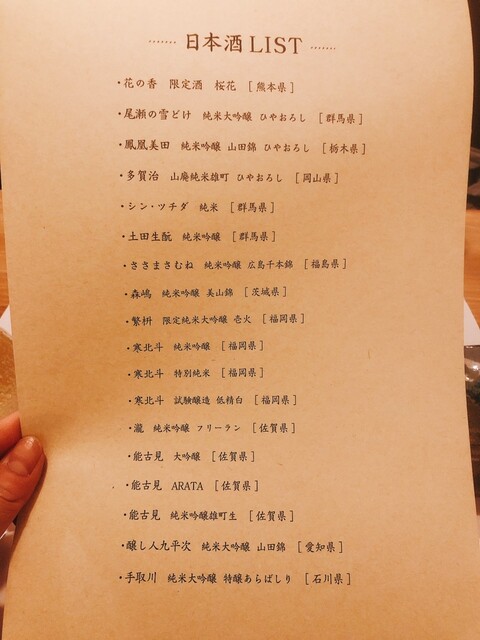 日本酒 LIST
・花の香 限定酒 桜花 [熊本県]
・尾瀬の雪どけ 純米大吟醸 ひやおろし [群馬県]
・鳳凰美田 純米吟醸 山田錦 ひやおろし [栃木県]
・多賀治 山廃純米雄町 ひやおろし [岡山県]
・シン・ツチダ 純米 [群馬県]
・土田生酛 純米吟醸 [群馬県]
・ささまさむね 純米吟醸 広島千本錦 [福島県]
・森嶋 純米吟醸 美山錦 [茨城県]
・繁枡 限定純米大吟醸 壱火 [福岡県]
・寒北斗 純米吟醸 [福岡県]
・寒北斗 特別純米 [福岡県]
・寒北斗 試験醸造 低精白 [福岡県]
・瀧 純米吟醸 フリーラン [佐賀県]
・能古見 大吟醸 [佐賀県]
・能古見 ARATA [佐賀県]
・能古見 純米吟醸雄町生 [佐賀県]
・醸し人九平次 純米大吟醸 山田錦 [愛知県]
・手取川 純米大吟醸 特醸あらばしり [石川県]